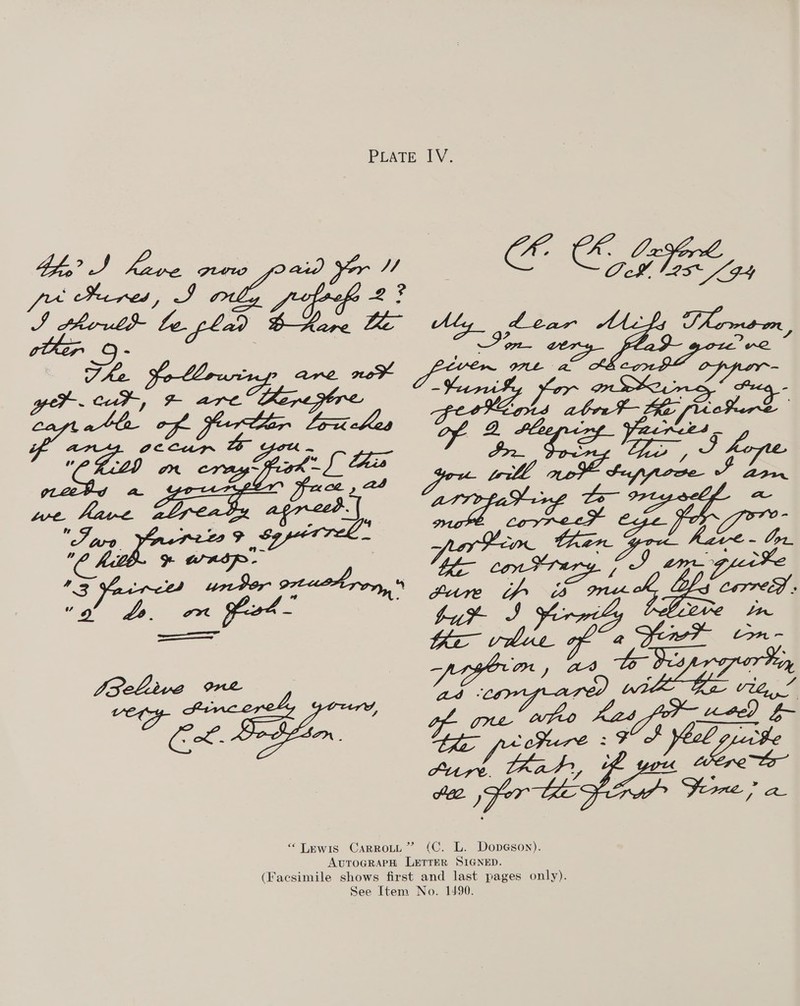 PLATE IV.
Ch. Ch. Oxford
Oct. 25 /94
My dear Miss Thomson,
I'm very glad you've
given me a second oppor-
-tunity for making sug-
gestions about the picture
of 2 sleeping fairies.
In doing this, I hope
you will not suppose I am
arrogating to myself a
more correct eye for pro-
-portion than you have. On
the contrary, I am quite
sure it is much less correct:
but I firmly believe in
the value of a first im-
-pression, as to disproportion
as compared with the view
of one who has got used to
the picture: & I feel quite
sure that, if you were to
see, for the first time, a
tho' I have now paid for 11
pictures, I only possess 2?
I should be glad to have the
other 9.
The following are not
yet cut, & are therefore
capable of further touches
if any occur to you.
"Child on cray-fish" [this
needs a younger face, as
we have already agreed.]
"Two fairies & squirrel"
"Child & wasp."
"3 fairies under mushroom"
"2 do. on fish"
Believe me
very sincerely yours,
C. L. Dodgson.
“LEWIS CARROLL” (C. L. DODGSON).
AUTOGRAPH LETTER SIGNED.
(Facsimile shows first and last pages only).
See Item No. 1490.